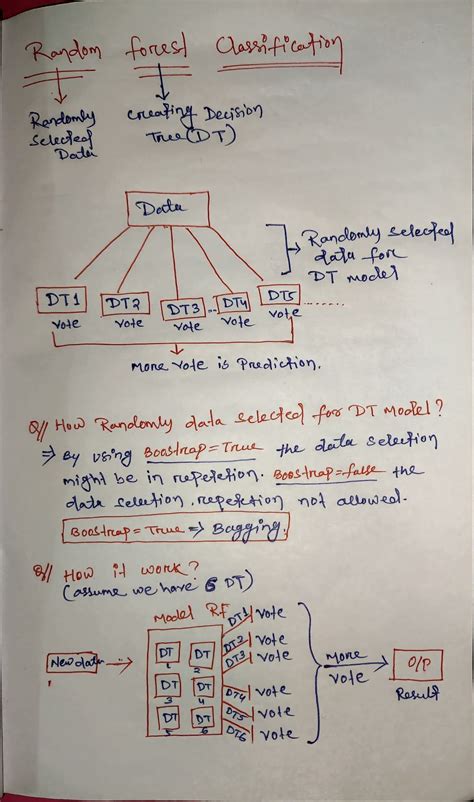 Random forest Classification
Randomly
Selected
Data
Creating Decision
Tree(DT)
Data
Randomly selected
data for
DT model
DT1 DT2 DT3 .. DT4 DT5 ......
vote vote vote vote vote
More vote is Prediction.
Q// How Randomly data selected for DT Model?
⇒ By using Boostrap=True the data selection
might be in repetetion. Boostrap=false the
data selection repetetion not allowed.
Boostrap=True ⇒ Bagging.
Q// How it work?
(assume we have 6 DT)
Model RF
New data
DT 1 DT 2
DT 3 DT 4
DT 5 DT 6
DT1 vote
DT2 vote
DT3 vote
DT4 vote
DT5 vote
DT6 vote
more
vote
O/P
Result